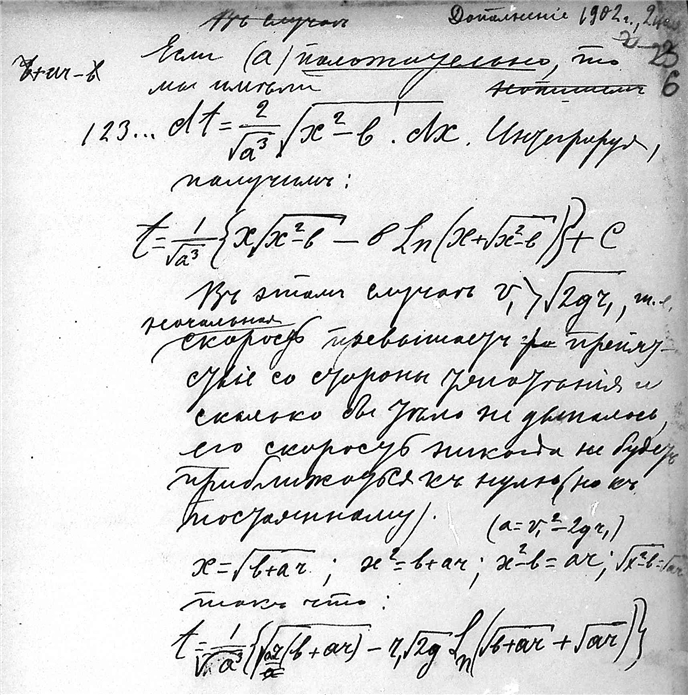 Въ случаѣ
Дополненіе 1902 г.,
23
b+ar-b
Если (a) положительно, то
6
мы имѣемъ напишемъ
123... dt = 2/√a³ √x²-b . dx. Интегрируя,
получимъ:
t = 1/√a³ {x√x²-b - b Ln(x+√x²-b)} + C
Въ этомъ случаѣ v₁ > √2gr₁, т.е.
начальная
скорость превышаетъ препят-
ствіе со стороны тяготѣнія и
сколько бы тѣло не двигалось,
его скорость никогда не будетъ
приближаться къ нулю (но къ
постоянному).
(a=v₁²-2gr₁)
x=√b+ar ; x²=b+ar ; x²-b=ar ; √x²-b=√ar
такъ что:
t = 1/√a³ {√ar(b+ar) - r₁√2g Ln(√b+ar + √ar)}